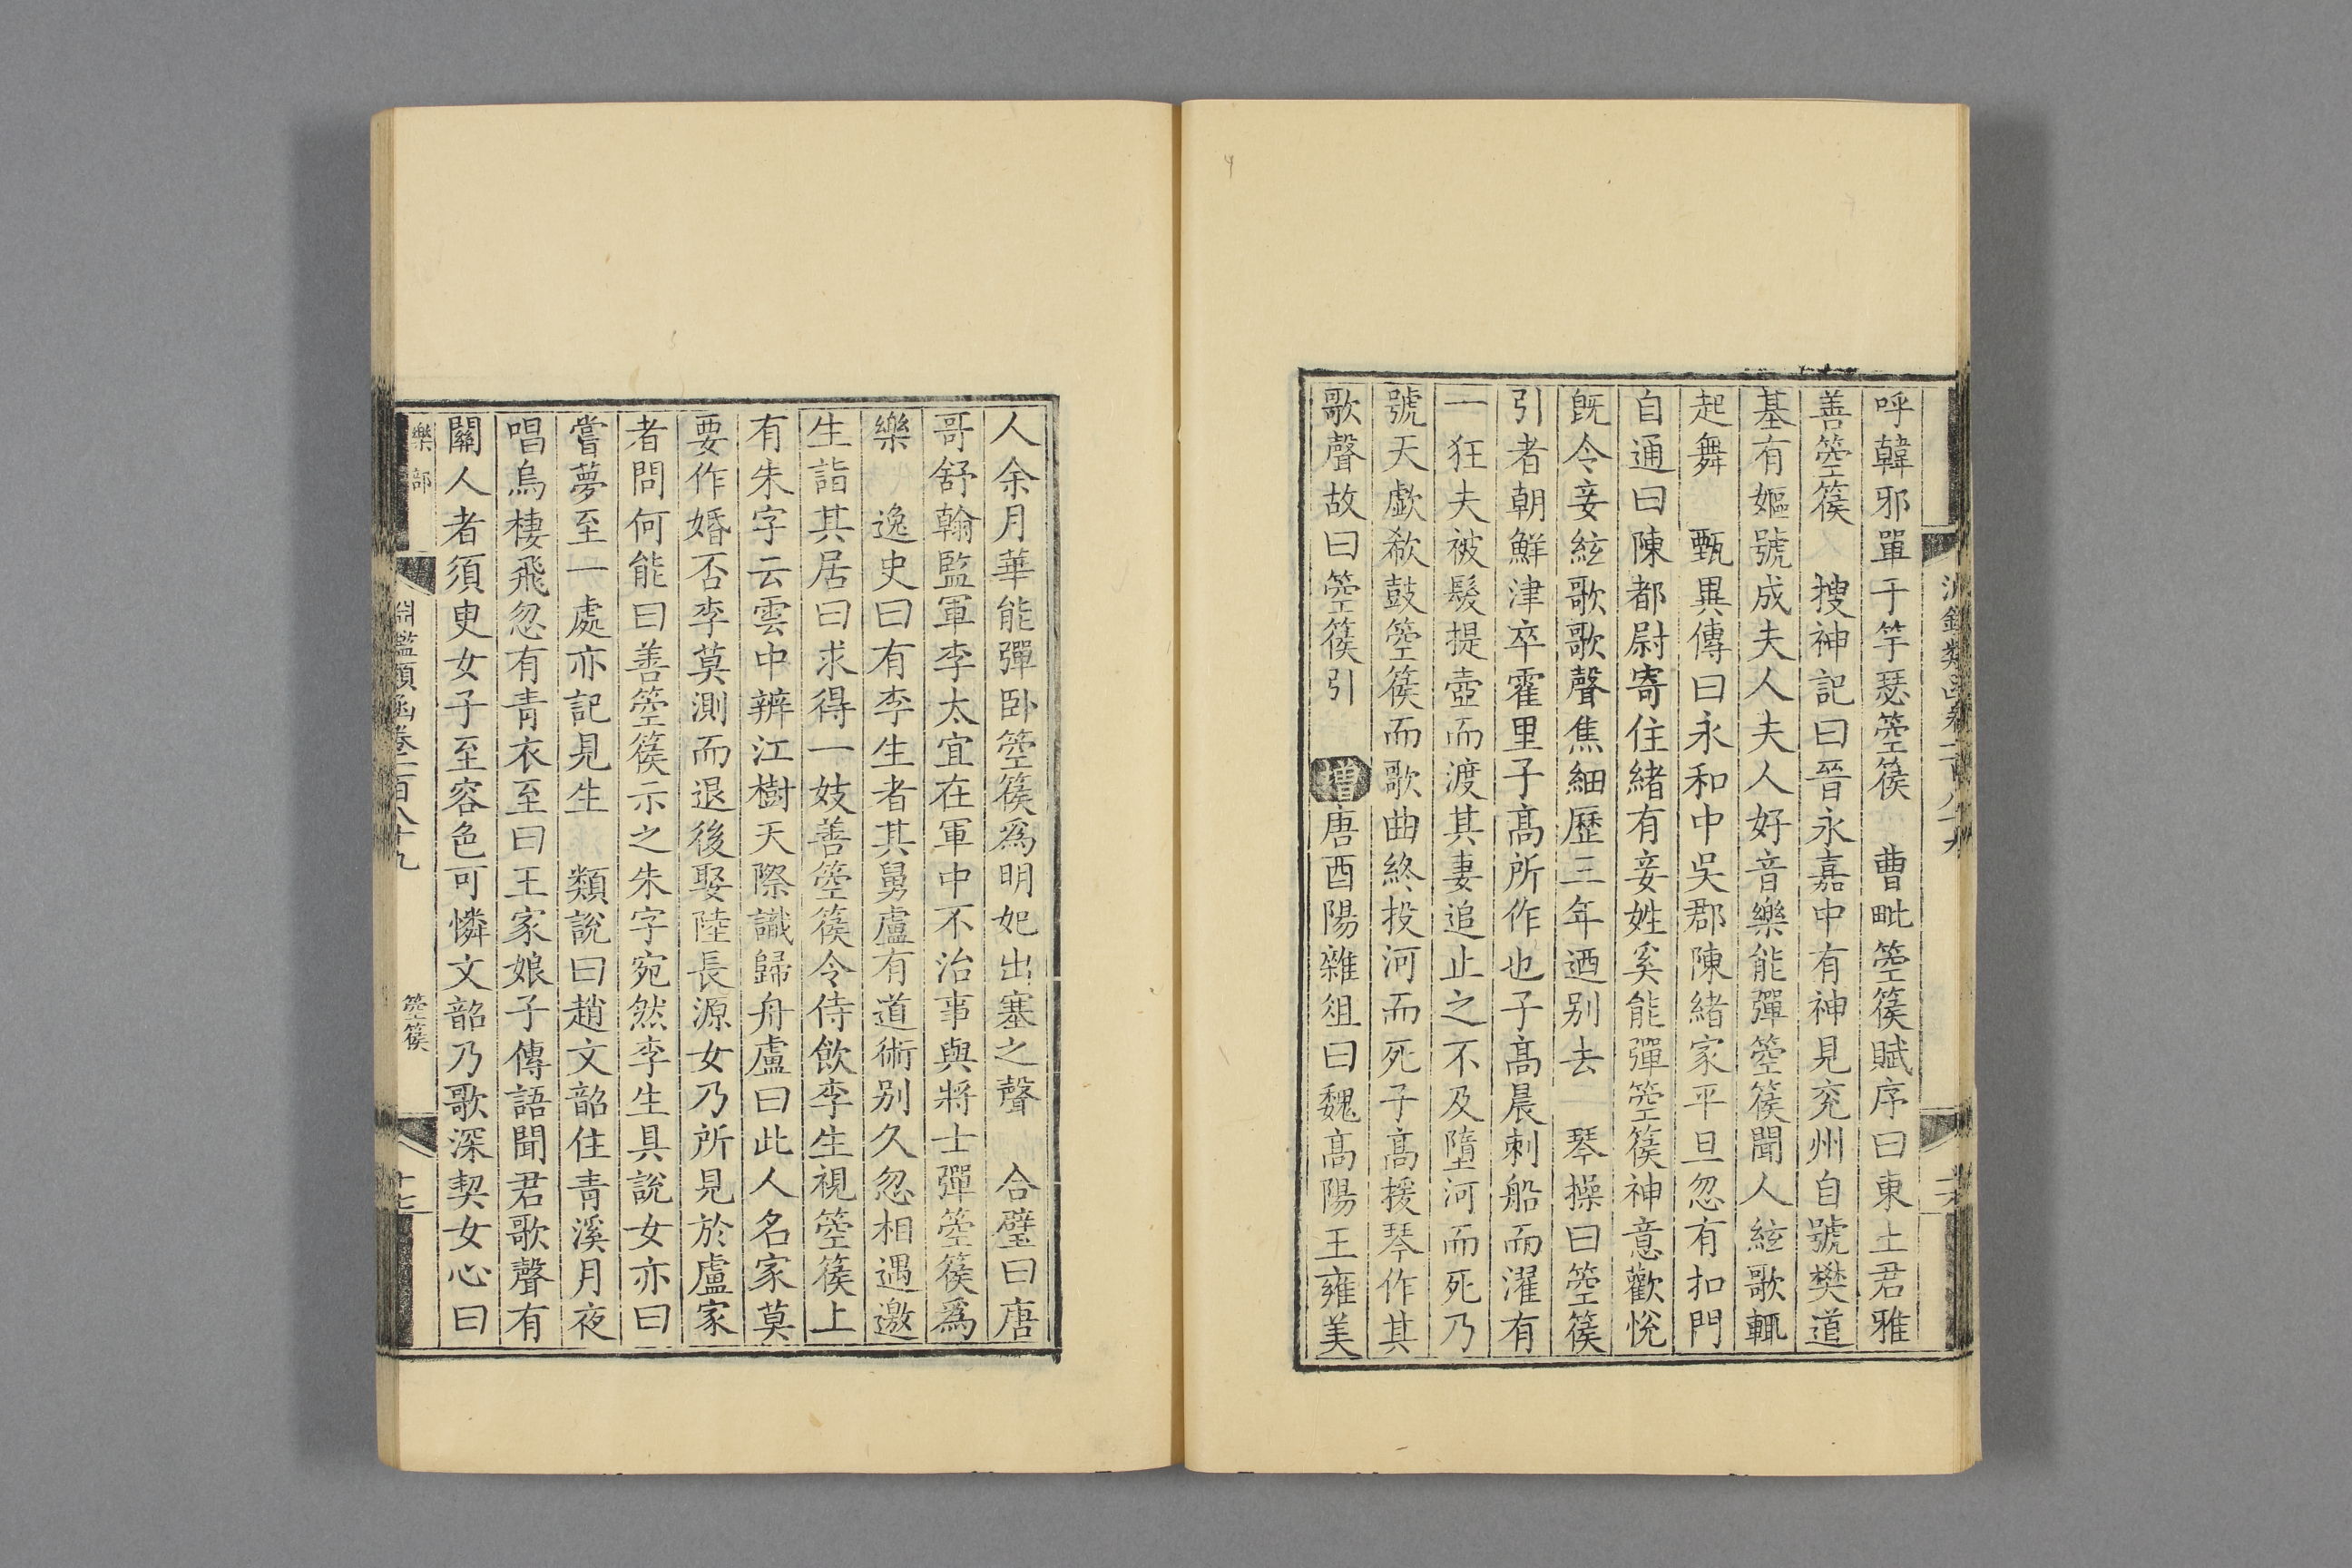 呼韓邪單于竽瑟箜篌　曹毗箜篌賦序曰東土君雅
善箜篌　搜神記曰晉永嘉中有神見兖州自號樊道
基有嫗號成夫人夫人好音樂能彈箜篌聞人絃歌輒
起舞　甄異傳曰永和中吳郡陳緒家平旦忽有扣門
自通曰陳都尉寄住緒有妾姓奚能彈箜篌神意歡悅
旣令妾絃歌歌聲焦細歷三年迺别去　琴操曰箜篌
引者朝鮮津卒霍里子高所作也子高晨刺船而濯有
一狂夫被髮提壺而渡其妻追止之不及墮河而死乃
號天歔欷鼓箜篌而歌曲終投河而死子高援琴作其
歌聲故曰箜篌引　增唐酉陽雜俎曰魏高陽王雍美
人余月華能彈卧箜篌爲明妃出塞之聲　合璧曰唐
哥舒翰監軍李太宜在軍中不治事與將士彈箜篌爲
樂　逸史曰有李生者其舅盧有道術别久忽相遇邀
生詣其居曰求得一妓善箜篌令侍飲李生視箜篌上
有朱字云雲中辨江樹天際識歸舟盧曰此人名家莫
要作婚否李莫測而退後娶陸長源女乃所見於盧家
者問何能曰善箜篌示之朱字宛然李生具說女亦曰
嘗夢至一處亦記見生　類說曰趙文韶住青溪月夜
唱烏棲飛忽有青衣至曰王家娘子傳語聞君歌聲有
關人者須臾女子至容色可憐文韶乃歌深契女心曰
樂部
淵鑑類函卷一百八十九
箜篌
十七